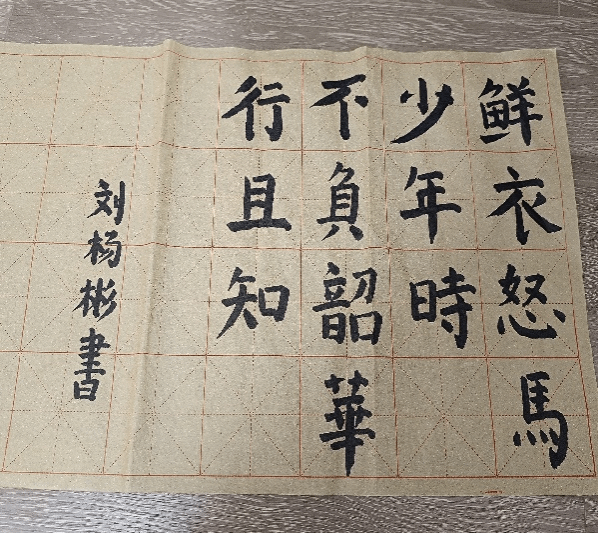 鲜衣怒馬
少年時
不負韶華
行且知
刘杨彬書